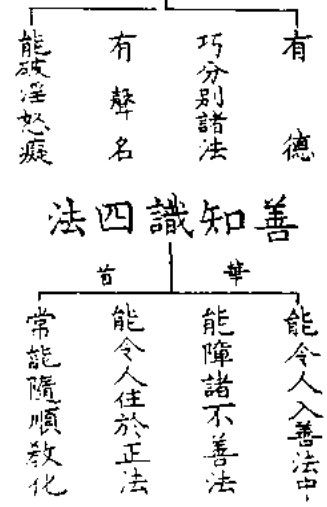 有德
巧分別諸法
有聲名
能破淫怒癡
善知識四法
華首
能令人入善法中
能障諸不善法
能令人住於正法
常能隨順教化